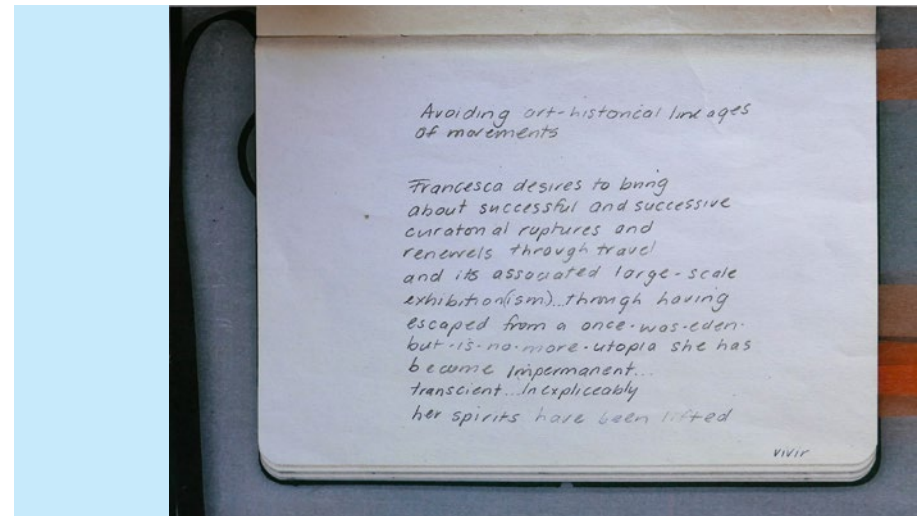 Avoiding art-historical lineages
of movements
Francesca desires to bring
about successful and successive
curatorial ruptures and
renewels through travel
and its associated large-scale
exhibition(ism)...through having
escaped from a once-was-eden-
but-is-no-more-utopia she has
become impermanent...
transcient...Inexpliceably
her spirits have been lifted
vivir